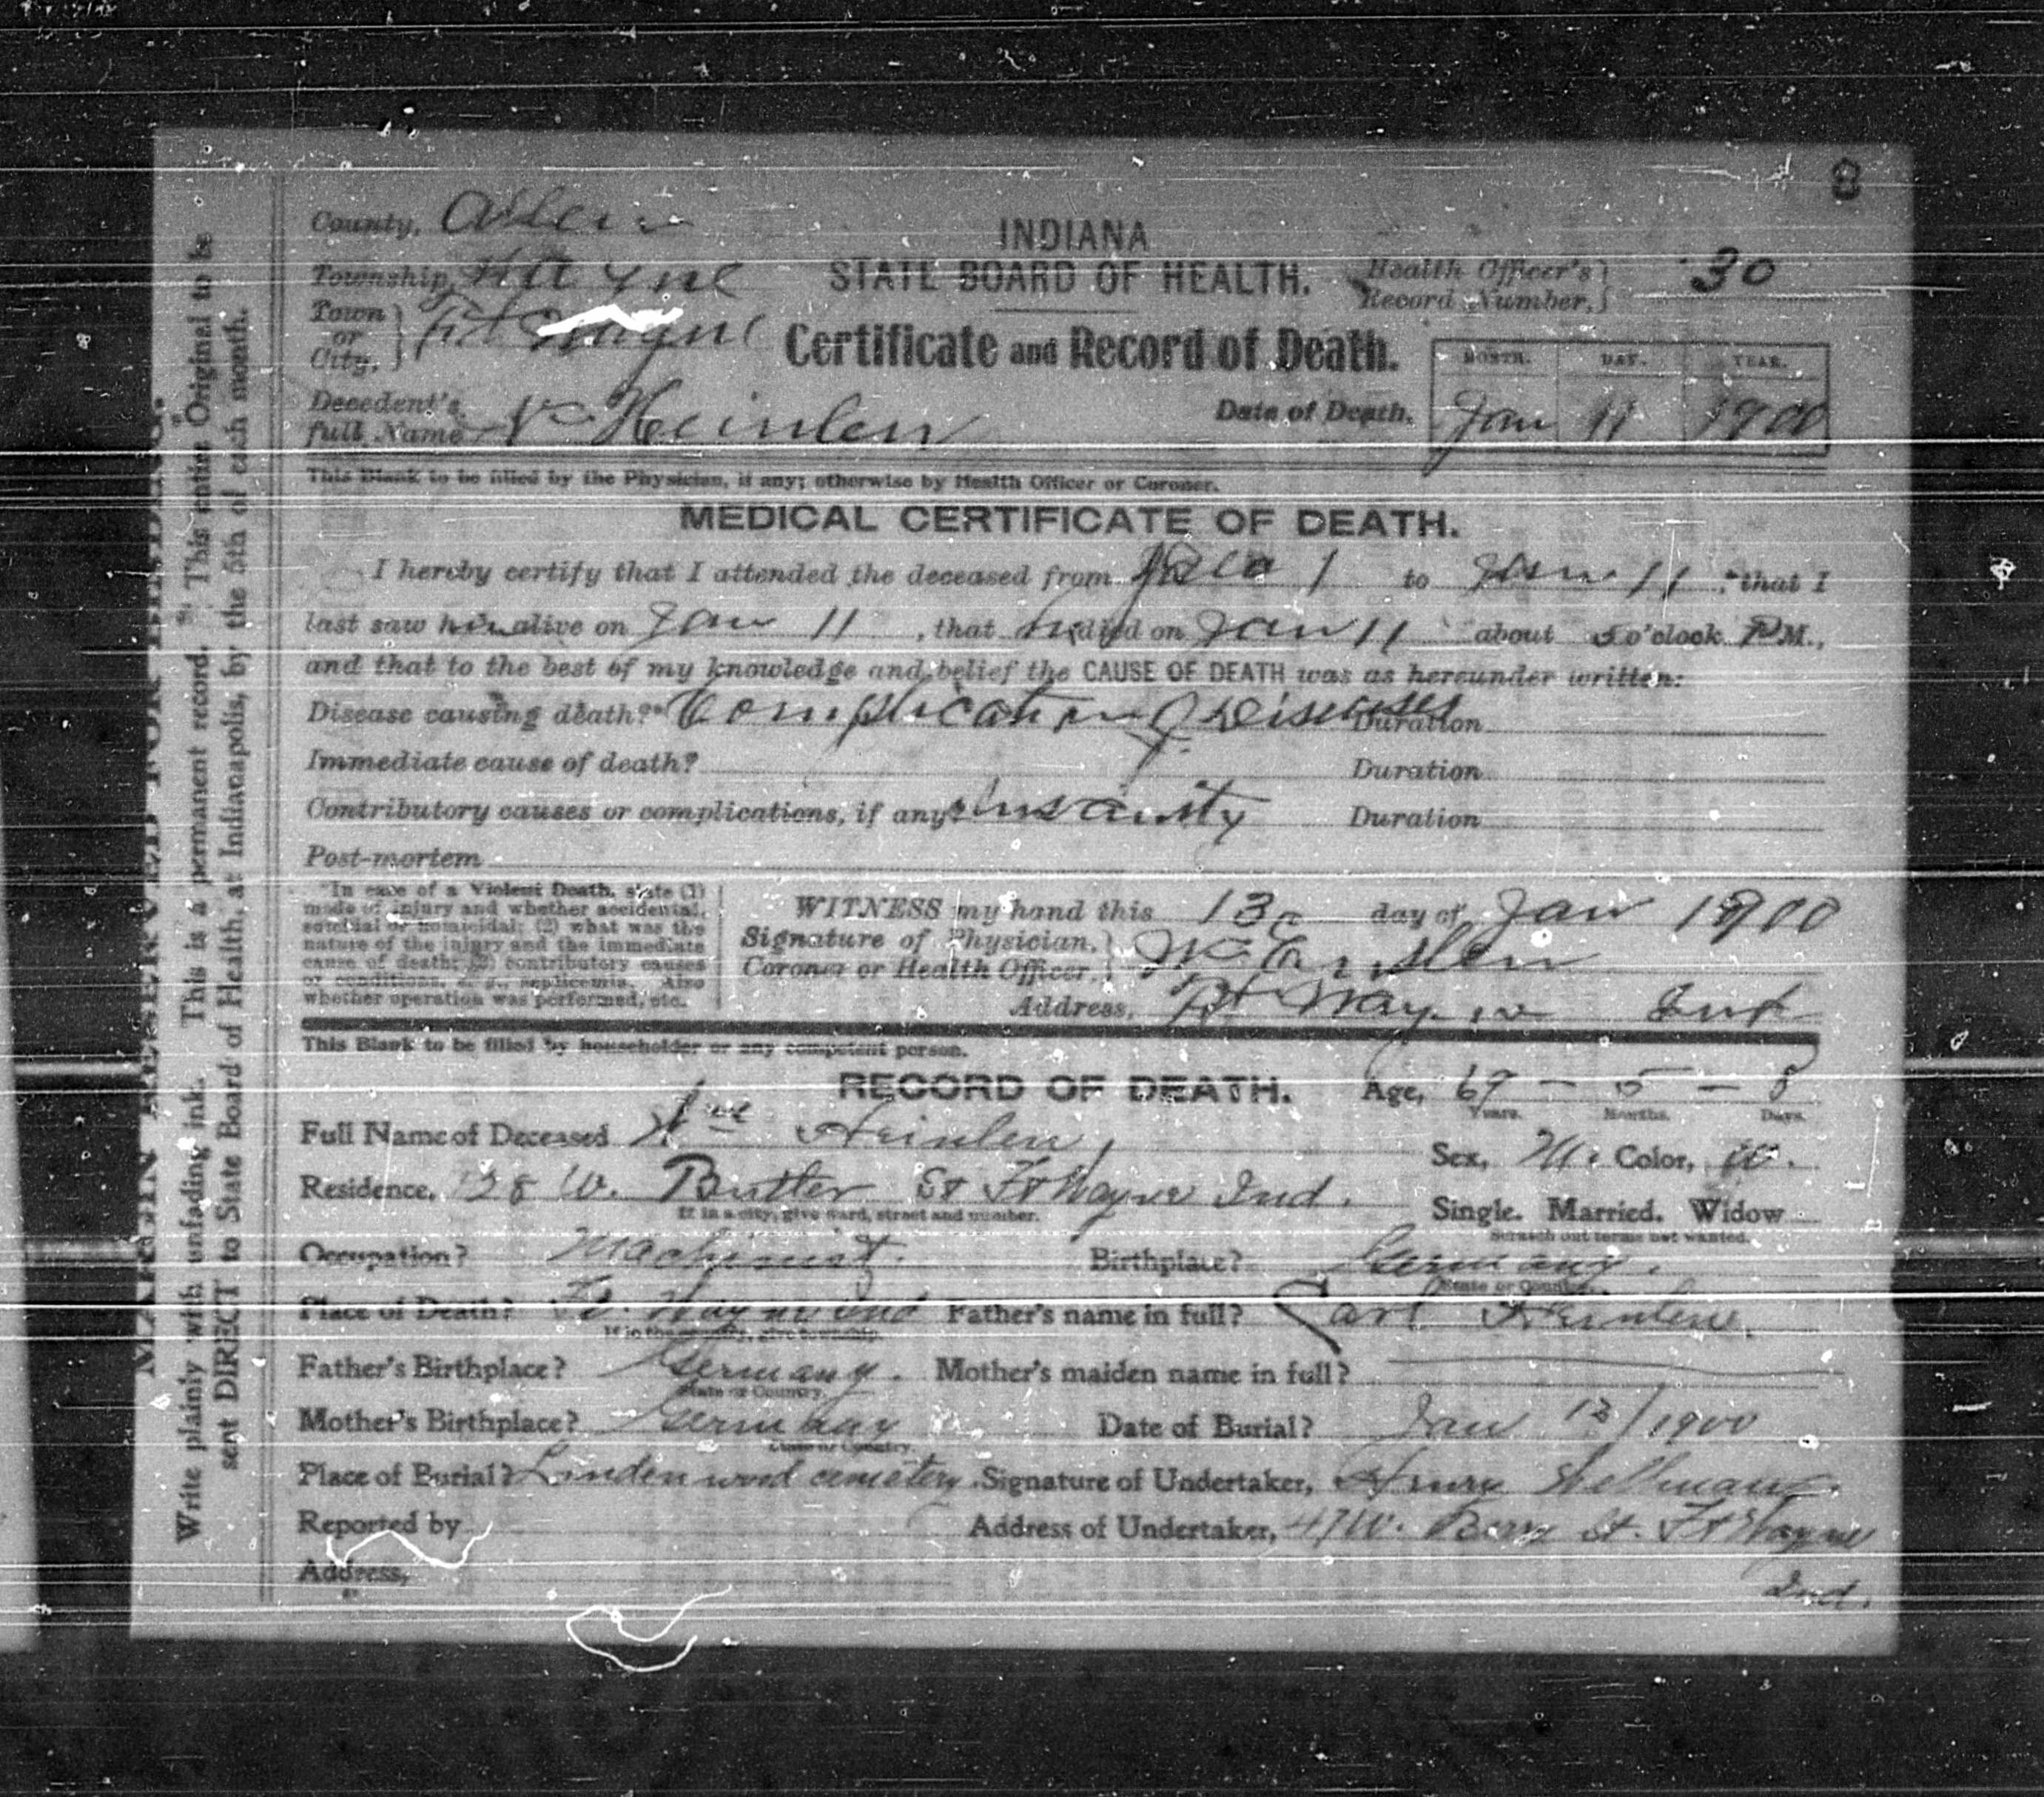 8
County, Allen
INDIANA
Township, Wayne
STATE BOARD OF HEALTH.
Health Officer's Record Number, 30
Town or City, Ft Wayne
Certificate and Record of Death.
MONTH. DAY. YEAR.
Decedent's full Name Heinlen
Date of Death, Jan 11 1900
This Blank to be filled by the Physician, if any; otherwise by Health Officer or Coroner.
MEDICAL CERTIFICATE OF DEATH.
I hereby certify that I attended the deceased from 1 to Jan 11, that I
last saw him alive on Jan 11, that he died on Jan 11 about 5 o'clock P M.,
and that to the best of my knowledge and belief the CAUSE OF DEATH was as hereunder written:
Disease causing death?* Complication of Diseases Duration
Immediate cause of death? Duration
Contributory causes or complications, if any? Insanity Duration
Post-mortem
*In case of a Violent Death, state (1)
mode of injury and whether accidental,
suicidal or homicidal; (2) what was the
nature of the injury and the immediate
cause of death; (3) contributory causes
or conditions, e. g., septicemia. Also
whether operation was performed, etc.
WITNESS my hand this 13 day of Jan 1900
Signature of Physician, Coroner or Health Officer,
Address, Ft Wayne Ind
This Blank to be filled by householder or any competent person.
RECORD OF DEATH.
Age, 69 – 5 – 8
Years. Months. Days.
Full Name of Deceased Heinlen,
Sex, M. Color, W.
Residence, 138 W. Butler St Ft Wayne Ind.
If in a city, give ward, street and number.
Single. Married. Widow
Scratch out terms not wanted.
Occupation? Machinist. Birthplace? Germany.
State or Country.
Place of Death? Ft. Wayne Ind Father's name in full? Carl Heinlen.
If in the country, give township.
Father's Birthplace? Germany. Mother's maiden name in full?
State or Country.
Mother's Birthplace? Germany Date of Burial? Jan 13/1900
State or Country.
Place of Burial? Lindenwood cemetery. Signature of Undertaker, Henry
Reported by Address of Undertaker, 47 W. Berry St. Ft Wayne
Address, Ind.
MARGIN RESERVED FOR BINDING.
Write plainly with unfading ink. This is a permanent record. This entire Original to be
sent DIRECT to State Board of Health, at Indianapolis, by the 5th of each month.